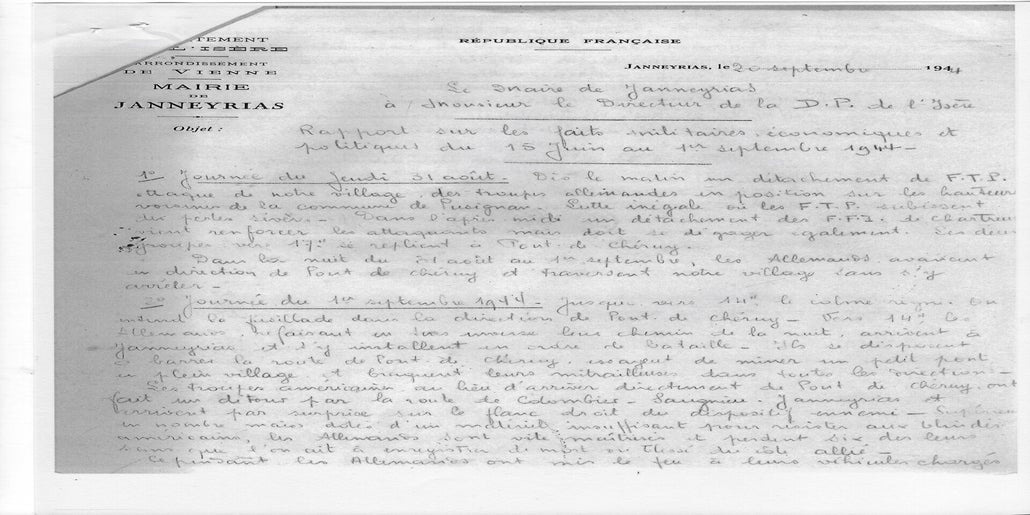 RÉPUBLIQUE FRANÇAISE
TEMENT
L'ISÈRE
ARRONDISSEMENT
DE VIENNE
MAIRIE
DE
JANNEYRIAS
Objet :
JANNEYRIAS, le 20 septembre 1944
Le Maire de Janneyrias
à Monsieur le Directeur de la D.P. de l'Isère
Rapport sur les faits militaires, économiques et
politiques du 15 Juin au 1er septembre 1944 -
1° Journée du Jeudi 31 août. - Dès le matin un détachement de F.T.P.
attaque de notre village, des troupes allemandes en position sur les hauteurs
voisines de la commune de Pusignan. Lutte inégale où les F.T.P. subissent
des pertes sévères. - Dans l'après-midi un détachement des F.F.I. de Chartreuse
vient renforcer les attaquants mais doit se dégager également. Les deux
groupes vers 17h se replient à Pont-de-Chéruy.
Dans la nuit du 31 août au 1er septembre, les Allemands avancent
en direction de Pont de Chéruy et traversent notre village sans s'y
arrêter. -
2° Journée du 1er septembre 1944 - Jusque vers 14h le calme règne. On
entend la fusillade dans la direction de Pont de Chéruy - Vers 14h les
Allemands, refaisant en sens inverse leur chemin de la nuit, arrivent à
Janneyrias et s'y installent en ordre de bataille - Ils se disposent
à barrer la route de Pont de Chéruy, essayent de miner un petit pont
en plein village et braquent leurs mitrailleuses dans toutes les directions -
Les troupes américaines au lieu d'arriver directement de Pont de Chéruy, ont
fait un détour par la route de Colombier - Saugnieu - Janneyrias et
arrivent par surprise sur le flanc droit du dispositif ennemi -
en nombre mais dotés d'un matériel insuffisant pour résister aux blindés
américains, les Allemands sont vite maîtrisés et perdent six des leurs
sans que l'on ait à enregistrer de mort ou blessé du côté allié -
Cependant les Allemands ont mis le feu à leurs véhicules chargés